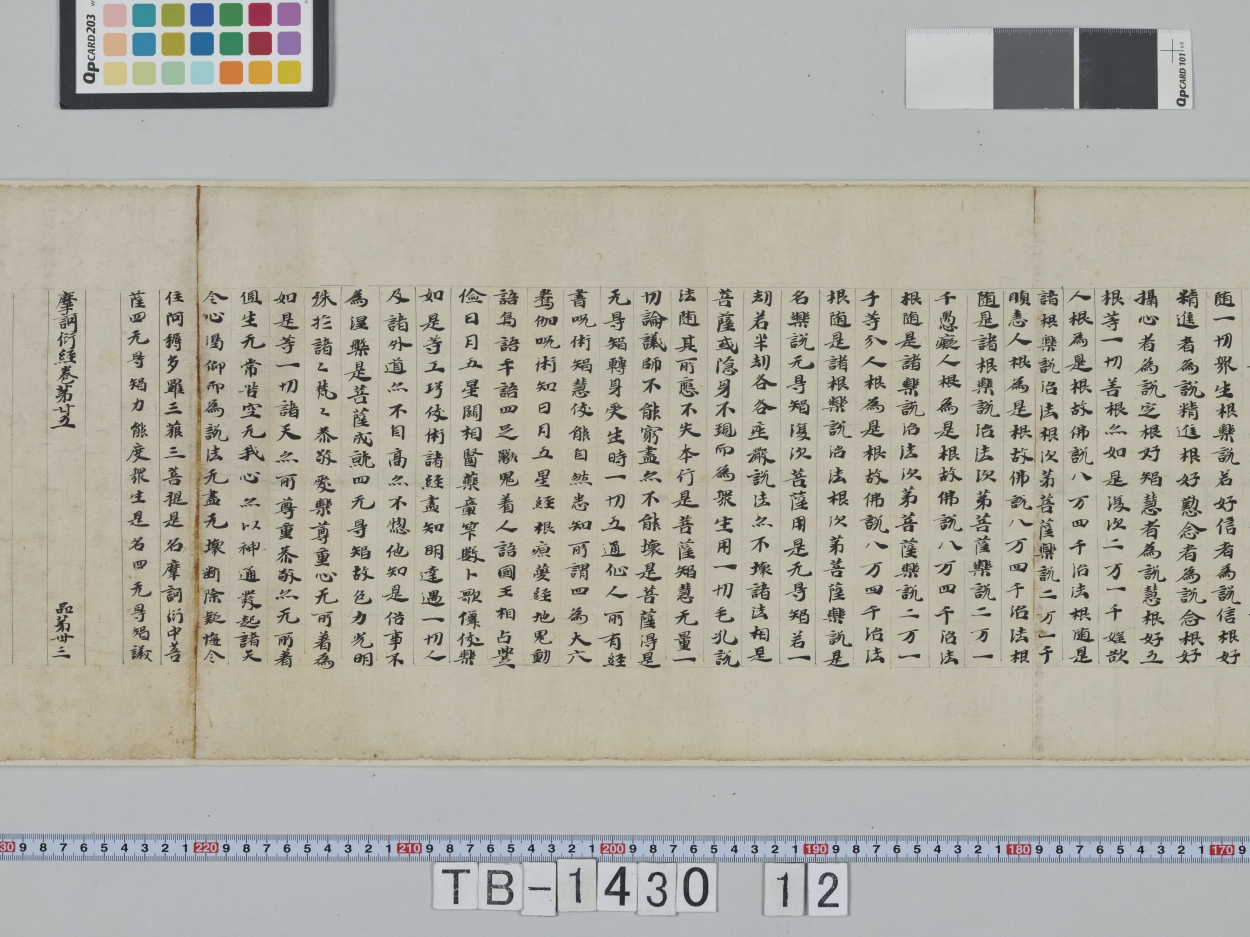 随一切衆生根樂說若好信者為說信根好
精進者為說精進根好懃念者為說念根好
攝心者為說定根好智慧者為說慧根好五
根等一切善根亦如是復次二万一千婬欲
人根為是根故佛說八万四千治法根随是
諸根樂說治法根次第菩薩樂說二万一千
瞋恚人根為是根故佛說八万四千治法根
随是諸根樂說治法次第菩薩樂說二万一
千愚癡人根為是根故佛說八万四千治法
根随是諸樂說治法次第菩薩樂說二万一
千等分人根為是根故佛說八万四千治法
根随是諸根樂說治法根次第菩薩樂說是
名樂說无㝵智復次菩薩用是无㝵智若一
劫若半劫各各莊嚴說法亦不壞諸法相是
菩薩或隱身不現而為衆生用一切毛孔說
法随其所應不失本行是菩薩智慧无量一
切論議師不能窮盡亦不能壞是菩薩得是
无㝵智轉身受生時一切五通仙人所有經
書呪術智慧伎能自然悉知所謂四為大六
鴦伽呪術知日月五星經相經夢經地鬼動
語鳥語手語四足獸鬼着人語國王相占豐
儉日月五星鬪相醫藥章筭數卜歌儛伎樂
如是等工巧伎術諸經盡知明達過一切人
及諸外道亦不自高亦不惱他知是俗事不
為涅槃是菩薩成就四无㝵智故色力光明
殊於諸〻梵〻恭敬愛樂尊重心无所著為
如是等一切諸天亦所尊重恭敬亦无所著
但生无常苦空无我心亦以神通發起諸天
令心渴仰而為說法无盡无壞斷除疑悔令
住阿耨多羅三藐三菩提是名摩訶衍中菩
薩四无㝵智力能度衆生是名四无㝵智議
摩訶衍經卷第廿五
品第卅三
QpCARD 203
QpCARD 101 v4
TB-1430 12